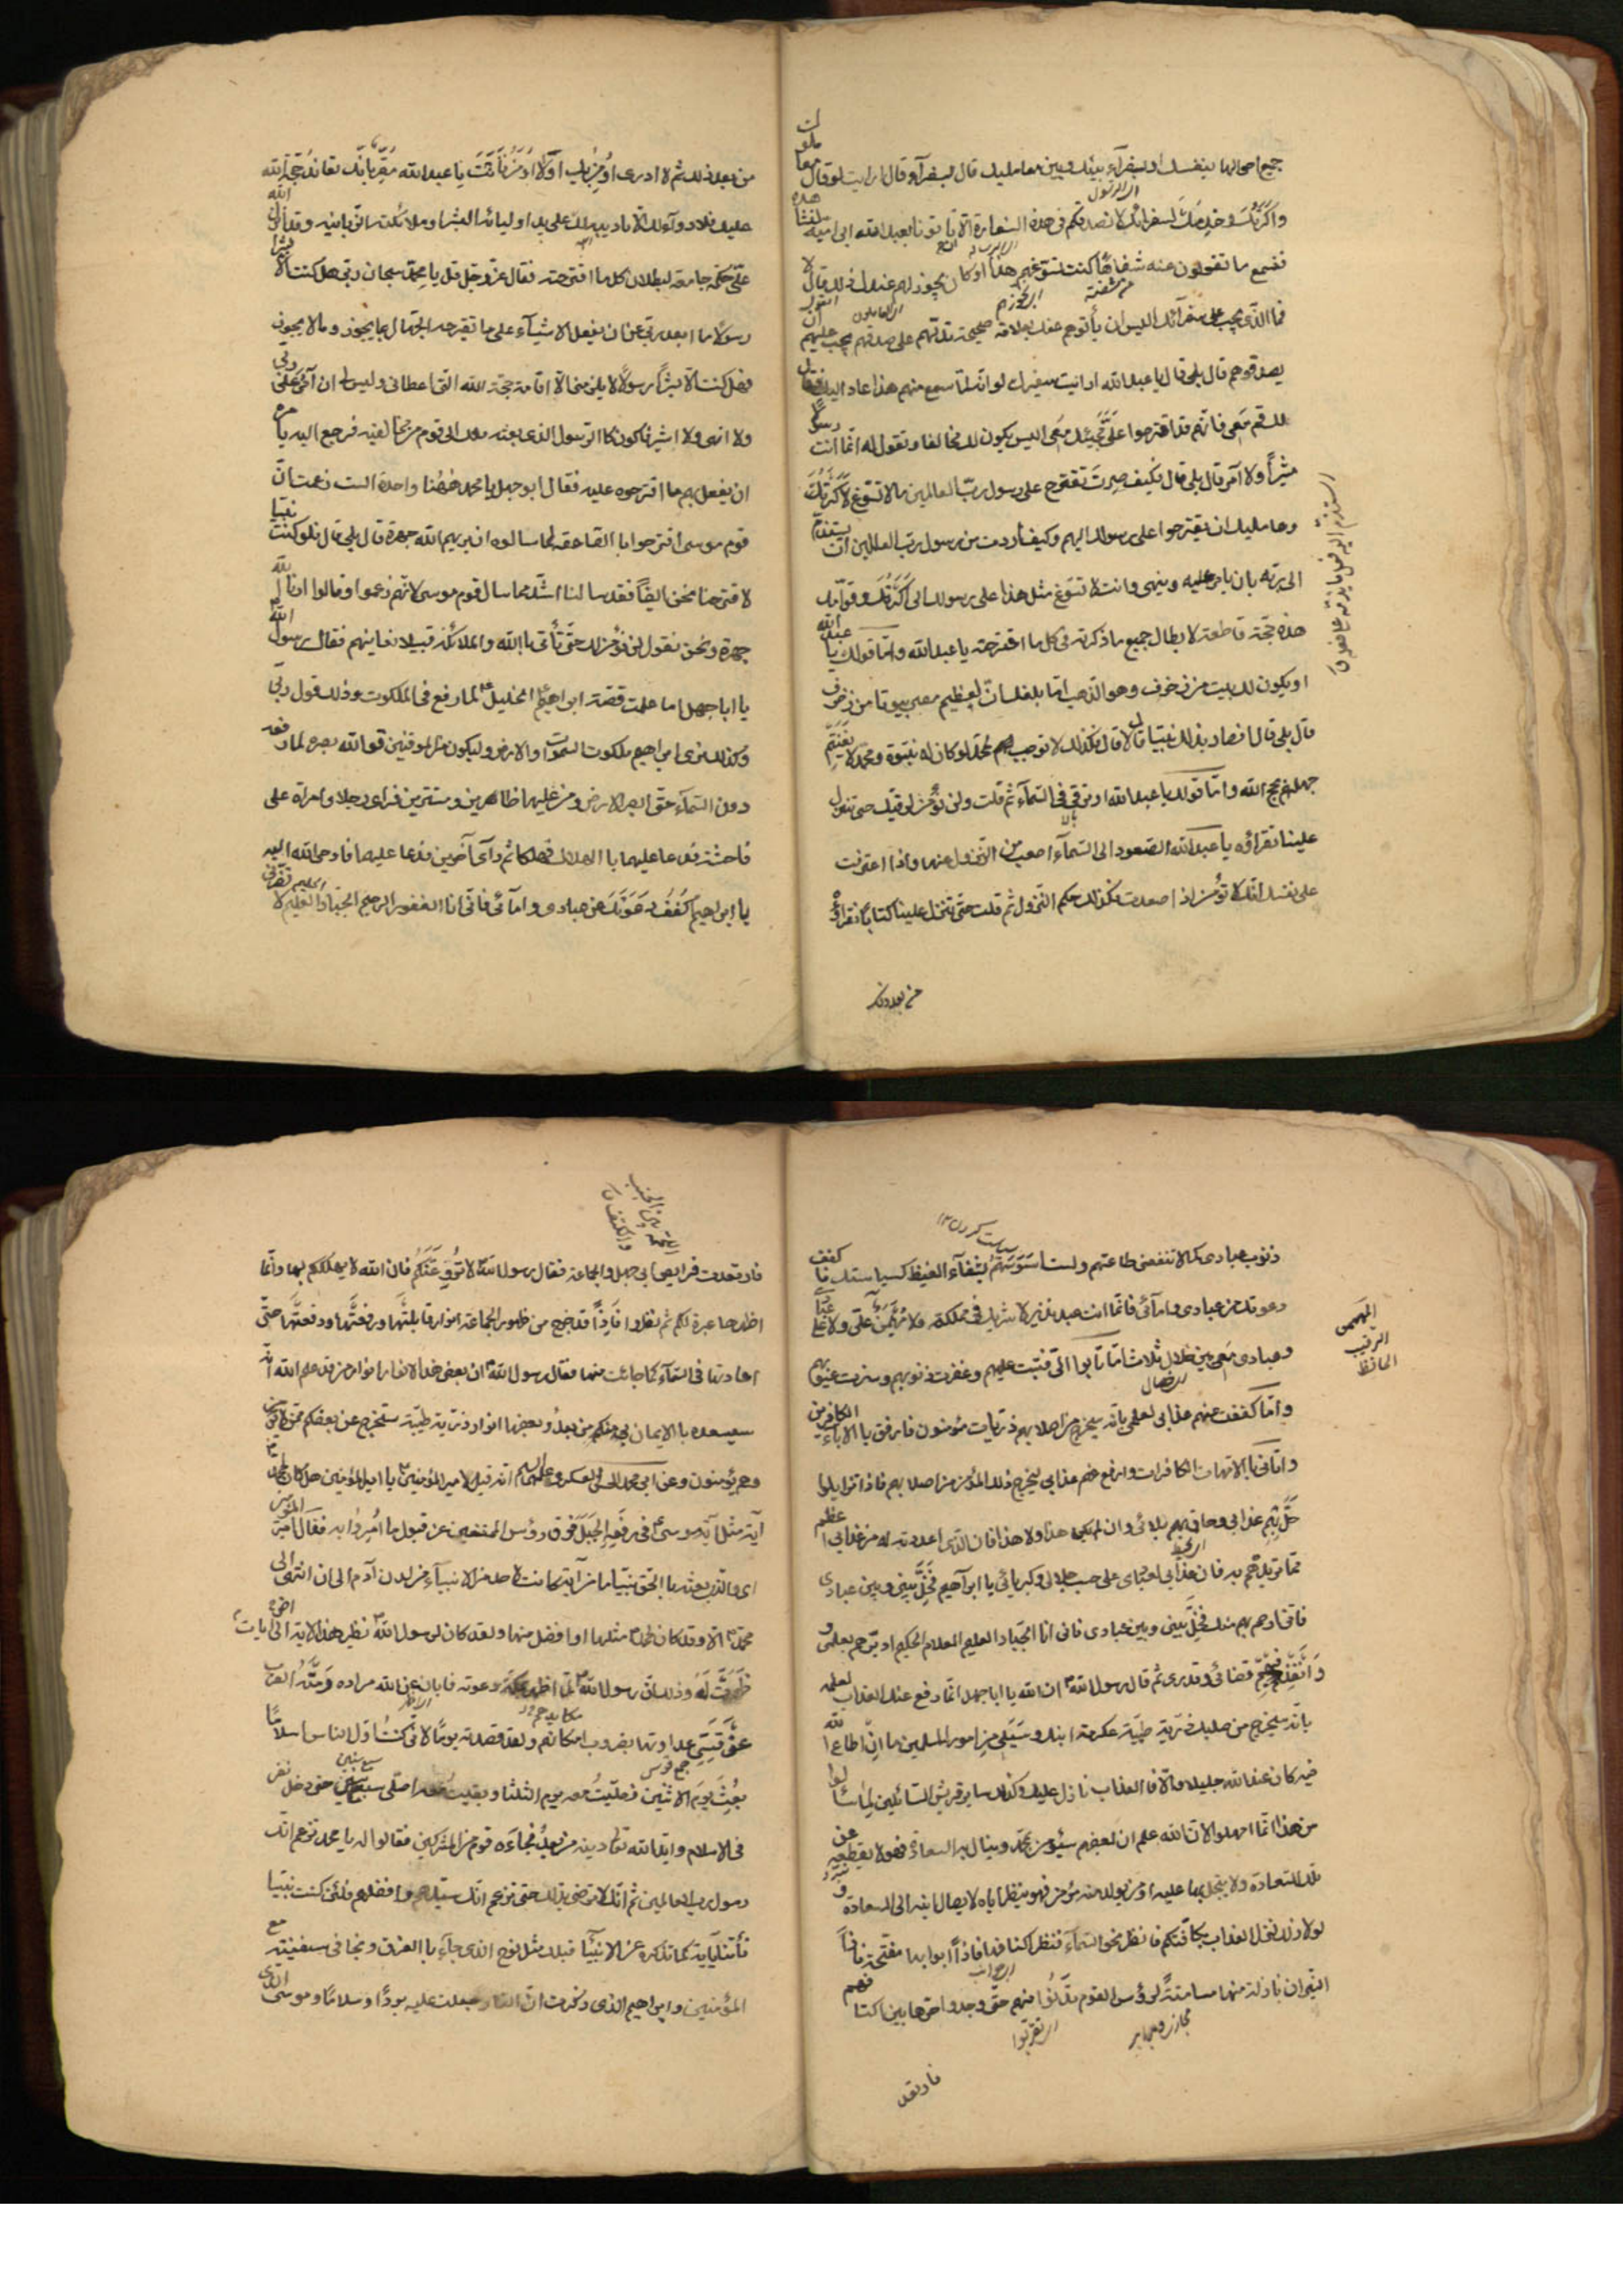 جميع احوالها بنفسك او بسفرآء بينك وبين معامليك قال بسفرآء وقال ارايت لو قال معاملوك
واكرتك وخدمك لسفرائك لا نصدقكم فى هذه السفارة الا ان تاتونا بعبدالله ابى امية
فنسمع ما تقولون عنه شفاها كنت تسوغهم هذا او كان يجوز لهم عندك ذلك قال لا
فما الذى يجب على سفرائك اليس ان ياتوهم عنك بعلامة صحيحة تدلهم على صدقهم يجب عليهم ان
يصدقوهم قال بلى قال يا عبدالله ارايت سفيرك لو انه لما سمع منهم هذا عاد اليك فقال
لك قم معى فانهم قد اقترحوا على مجيئك معى اليس يكون لك مخالفا وتقول له انما انت رسول
مشيراً ولا آمر قال بلى قال فكيف صرت تقترح على رسول رب العالمين ما لا تسوغ لاكرتك
ومعامليك ان يقترحوا على رسولك اليهم وكيف اردت من رسول رب العالمين ان يستذم
الى ربه بان يامر عليه وينهى وانت لا تسوغ مثل هذا على رسولك الى اكرتك وقوامك
هذه حجة قاطعة لابطال جميع ما ذكرته فى كل ما اقترحته يا عبدالله واما قولك يا عبدالله
او يكون لك بيت من زخرف وهو الذهب اما بلغك ان لعظيم مصر بيوتا من زخرف
قال بلى قال افصار بذلك نبيا قال لا قال فكذلك لا توجب لمحمد لو كان له نبوة ومحمد لا يغتنم
جهلك بحجج الله واما قولك يا عبدالله او ترقى فى السمآء ثم قلت ولن نؤمن لرقيك حتى تنزل
علينا نقراؤه يا عبدالله الصعود الى السمآء اصعب من النزول عنها واذا اعترفت
على نفسك انك لا تؤمن اذا صعدت فكذلك حكم النزول ثم قلت حتى تنزل علينا كتاباً نقراؤه
من بعد ذلك
من بعد ذلك ثم لا ادرى اومن بك اولا اومن فانت يا عبدالله مقر بانك تعاند حجة الله
عليك فلا دوآء لك الا تاديبه لك على يد اوليائه البشر او ملائكته الزبانية وقد انزل الله
على حكمة جامعة لبطلان كل ما اقترحته فقال عز وجل قل يا محمد سبحان ربى هل كنت الا بشرا
رسولاً ما ابعد ربى عن ان يفعل الاشيآء على ما تقترحه الجهال بما يجوز وما لا يجوز
وهل كنت الا بشراً رسولا لا يلزمنى الا اقامة حجة الله التى اعطانى وليس لى ان آمر على ربى
ولا انهى ولا اشير فاكون كالرسول الذى بعثه ملك الى قوم من مخالفيه فرجع اليه يامره
ان يفعل بهم ما اقترحوه عليه فقال ابو جهل يا محمد ههنا واحدة الست زعمت ان
قوم موسى احترقوا بالصاعقة لما سالوه ان يريهم الله جهرة قال بلى قال فلو كنت نبيا
لاحترقنا نحن ايضاً فقد سالنا اشد مما سال قوم موسى لانهم زعموا وقالوا ارنا الله
جهرة ونحن نقول لن نؤمن لك حتى تأتى باالله والملائكة قبيلا نعاينهم فقال رسول الله
يا ابا جهل اما علمت قصة ابراهيم الخليل لما رفع فى الملكوت وذلك قول ربى
وكذلك نرى ابراهيم ملكوت السموات والارض وليكون من الموقنين قوى الله بصره لما رفعه
دون السمآء حتى ابصر الارض ومن عليها ظاهرين ومستترين فراى رجلا وامراة على
فاحشة فدعا عليهما باالهلاك فهلكا ثم رآى آخرين فدعا عليهما فاوحى الله اليه
يا ابراهيم كفف دعوتك عن عبادى وامآئى فانى انا الغفور الرحيم الجبار الحليم لا تضرنى
ذنوب عبادى كما لا تنفعنى طاعتهم ولست اسوسهم بشفآء الغيظ كسياستك فاكفف
دعوتك عن عبادى وامآئى فانما انت عبد نذير لا شريك فى مملكة ولا مهيمن على ولا على عبادى
وعبادى معى بين خلال ثلاث اما تابوا الى فتبت عليهم وغفرت ذنوبهم وسترت عيوبهم
واما كففت عنهم عذابى لعلمى بانه سيخرج من اصلابهم ذريات مؤمنون فارفق باالآباء الكافرين
واتانى باالامهات الكافرات وارفع عنهم عذابى ليخرج ذلك المؤمن من اصلابهم فاذا تزايلوا
حل بهم عذابى وحاق بهم بلائى وان لم يكن هذا ولا هذا فان الذى اعددته له من عذابى اعظم
مما تريدهم به فان عذابى لعبادى على حسب جلالى وكبريائى يا ابراهيم فخل بينى وبين عبادى
فانى ارحم بهم منك فخل بينى وبين عبادى فانى انا الجبار الحليم العلام الحكيم ادبرهم بعلمى و
وانفذ فيهم قضائى وقدرى ثم قال رسول الله ان الله يا ابا جهل انما دفع عنك العذاب لعلمه
بانه سيخرج من صلبك ذرية طيبة عكرمة ابنك وسيلى من امور المسلمين ما ان اطاع الله
فيه كان عند الله جليلا والا فالعذاب نازل عليك وكذلك ساير قريش السائلين لما سألوا
من هذا انما امهلوا لان الله علم ان بعضهم سيؤمن بمحمد وينال به السعادة فهو لا يقطعه عن
تلك السعادة ولا يبخل بها عليه او من يولد منه مؤمن فهو ينظر اباه لايصال ابنه الى السعادة
لولا ذلك لنزل العذاب بكافتكم فانظر نحو السمآء فنظر اكنافها فاذا ابوابها مفتحة واذا
النيران نازلة منها مسامتة لرؤس القوم تدنوا منهم حتى وجدوا حرها بين اكتافهم
المهيمن
الرقيب
الحافظ
فارتعد
فارتعدت فرايص ابى جهل والجماعة فقال رسول الله لا تروعنكم فان الله لا يهلككم بها وانما
اظهرها عبرة لكم ثم نظروا فاذاً قد خرج من ظهور الجماعة انوار قابلتها ورفعتها ودفعتها حتى
اعادتها فى السمآء كما جائت منها فقال رسول الله ان بعض هذه الانوار انوار من قد علم الله انه
سيسعده باالايمان بى منكم من بعد وبعضها انوار ذرية طيبة ستخرج عن بعضكم ممن لا يؤمن
وهم يؤمنون وعن ابى محمد الحسن العسكرى عليه السلم انه قيل لامير المؤمنين يا امير المؤمنين هل كان لمحمد
آية مثل آية موسى فى رفعه الجبل فوق رؤس الممتنعين عن قبول ما امروا به فقال امير المؤمنين
اى والذى بعثه باالحق نبيا ما من آية كانت لاحد من الانبيآء من لدن آدم الى ان انتهى الى
محمد الا وقد كان لمحمد مثلها او افضل منها ولقد كان لرسول الله نظير هذه الاية الى ايات اخر
ظهرت له وذلك ان رسول الله لما اظهر بمكة دعوته وابان عن الله مراده رمته العرب
عن قسى عداوتها بضروب امكانهم ولقد قصدته يوما لانى كنت اول الناس اسلاما
بعث يوم الاثنين وصليت معه يوم الثلثا وبقيت معه اصلى سبع سنين حتى دخل نفر
فى الاسلام وايد الله تعالى دينه من بعد فجاءه قوم من المشركين فقالوا له يا محمد تزعم انك
رسول رب العالمين ثم انك لا ترضى بذلك حتى تزعم انك سيدهم وافضلهم فلئن كنت نبيا
فأتنا بآية كما تذكره عن الانبيآء قبلك مثل نوح الذى جآء باالغرق ونجا فى سفينته مع
المؤمنين وابراهيم الذى ذكرت ان النار جعلت عليه بردًا وسلامًا وموسى الذى